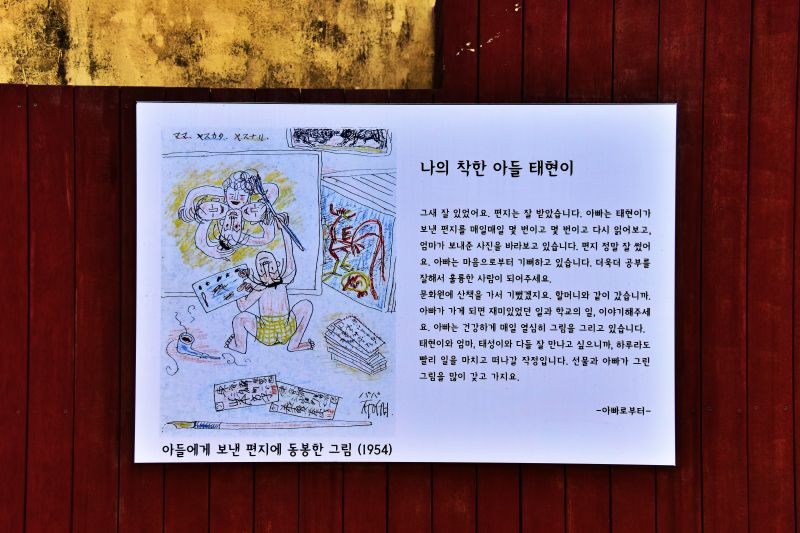 ママ. ヤスカタ. ヤスナリ.
パパ
나의 착한 아들 태현이
그새 잘 있었어요. 편지는 잘 받았습니다. 아빠는 태현이가
보낸 편지를 매일매일 몇 번이고 몇 번이고 다시 읽어보고,
엄마가 보내준 사진을 바라보고 있습니다. 편지 정말 잘 썼어
요. 아빠는 마음으로부터 기뻐하고 있습니다. 더욱더 공부를
잘해서 훌륭한 사람이 되어주세요.
문화원에 산책을 가서 기뻤겠지요. 할머니와 같이 갔습니까.
아빠가 가게 되면 재미있었던 일과 학교의 일, 이야기해주세
요. 아빠는 건강하게 매일 열심히 그림을 그리고 있습니다.
태현이와 엄마, 태성이와 다들 잘 만나고 싶으니까, 하루라도
빨리 일을 마치고 떠나갈 작정입니다. 선물과 아빠가 그린
그림을 많이 갖고 가지요.
-아빠로부터-
아들에게 보낸 편지에 동봉한 그림 (1954)